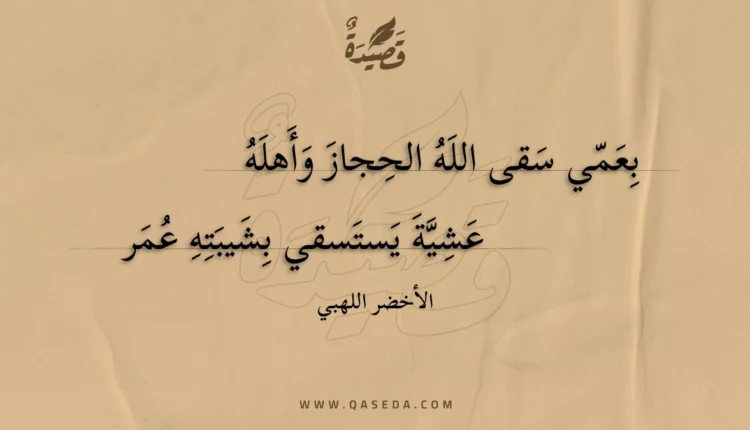 قَصِيدَةٌ
بِعَمّي سَقى اللَهُ الحِجازَ وَأَهلَهُ
عَشِيَّةَ يَستَسقي بِشَيبَتِهِ عُمَر
الأخضر اللهبي
WWW.QASEDA.COM